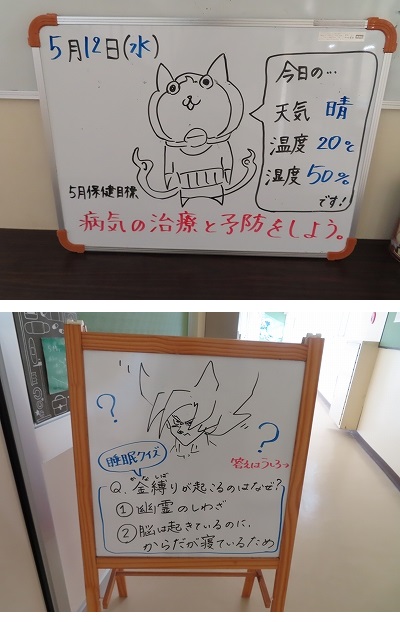 5月12日(水)
今日の…
天気 晴
温度 20℃
湿度 50%
です!
5月保健目標
病気の治療と予防をしよう。
?
?
睡眠クイズ
答えはうしろっ
かなしば
Q.金縛りが起こるのはなぜ?
①幽霊のしわざ
②脳は起きているのに、
からだが寝ているため